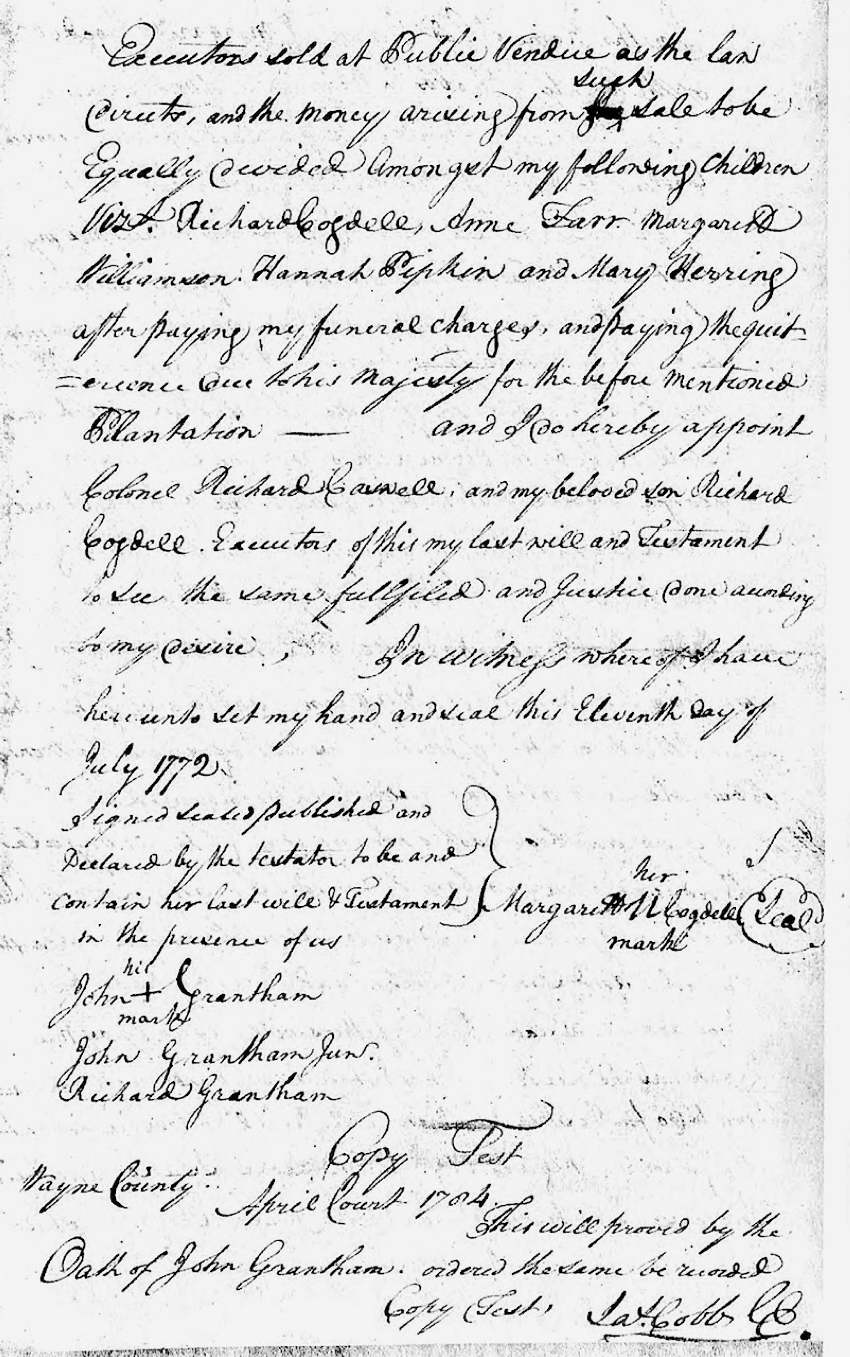 Executors sold at Public Vendue as the law
such
Directs, and the money arising from sale to be
Equally divided Amongst my following Children
Vizt. Richard Cogdell, Anne Farr Margarett
Williamson. Hannah Pipkin and Mary Herring
after paying my funeral charges, and paying the quit
= erence due to his Majesty for the before mentioned
Plantation — and I do hereby appoint
Colonel Richard Caswell, and my beloved son Richard
Cogdell. Executors of this my last will and Testament
to see the same fullfiled and Justice done acording
to my desire, In witness whereof I have
hereunto set my hand and seal this Eleventh day of
July 1772.
Signed sealed published and
Declared by the testator to be and
contain her last will & Testament
in the presence of us
her
Margarett M Cogdell (Seal)
mark
his
John + Grantham
mark
John Grantham Jun.
Richard Grantham
Copy Test
Wayne County
April Court 1784.
This will proved by the
Oath of John Grantham. ordered the same be recorded
Copy Test, Cobb